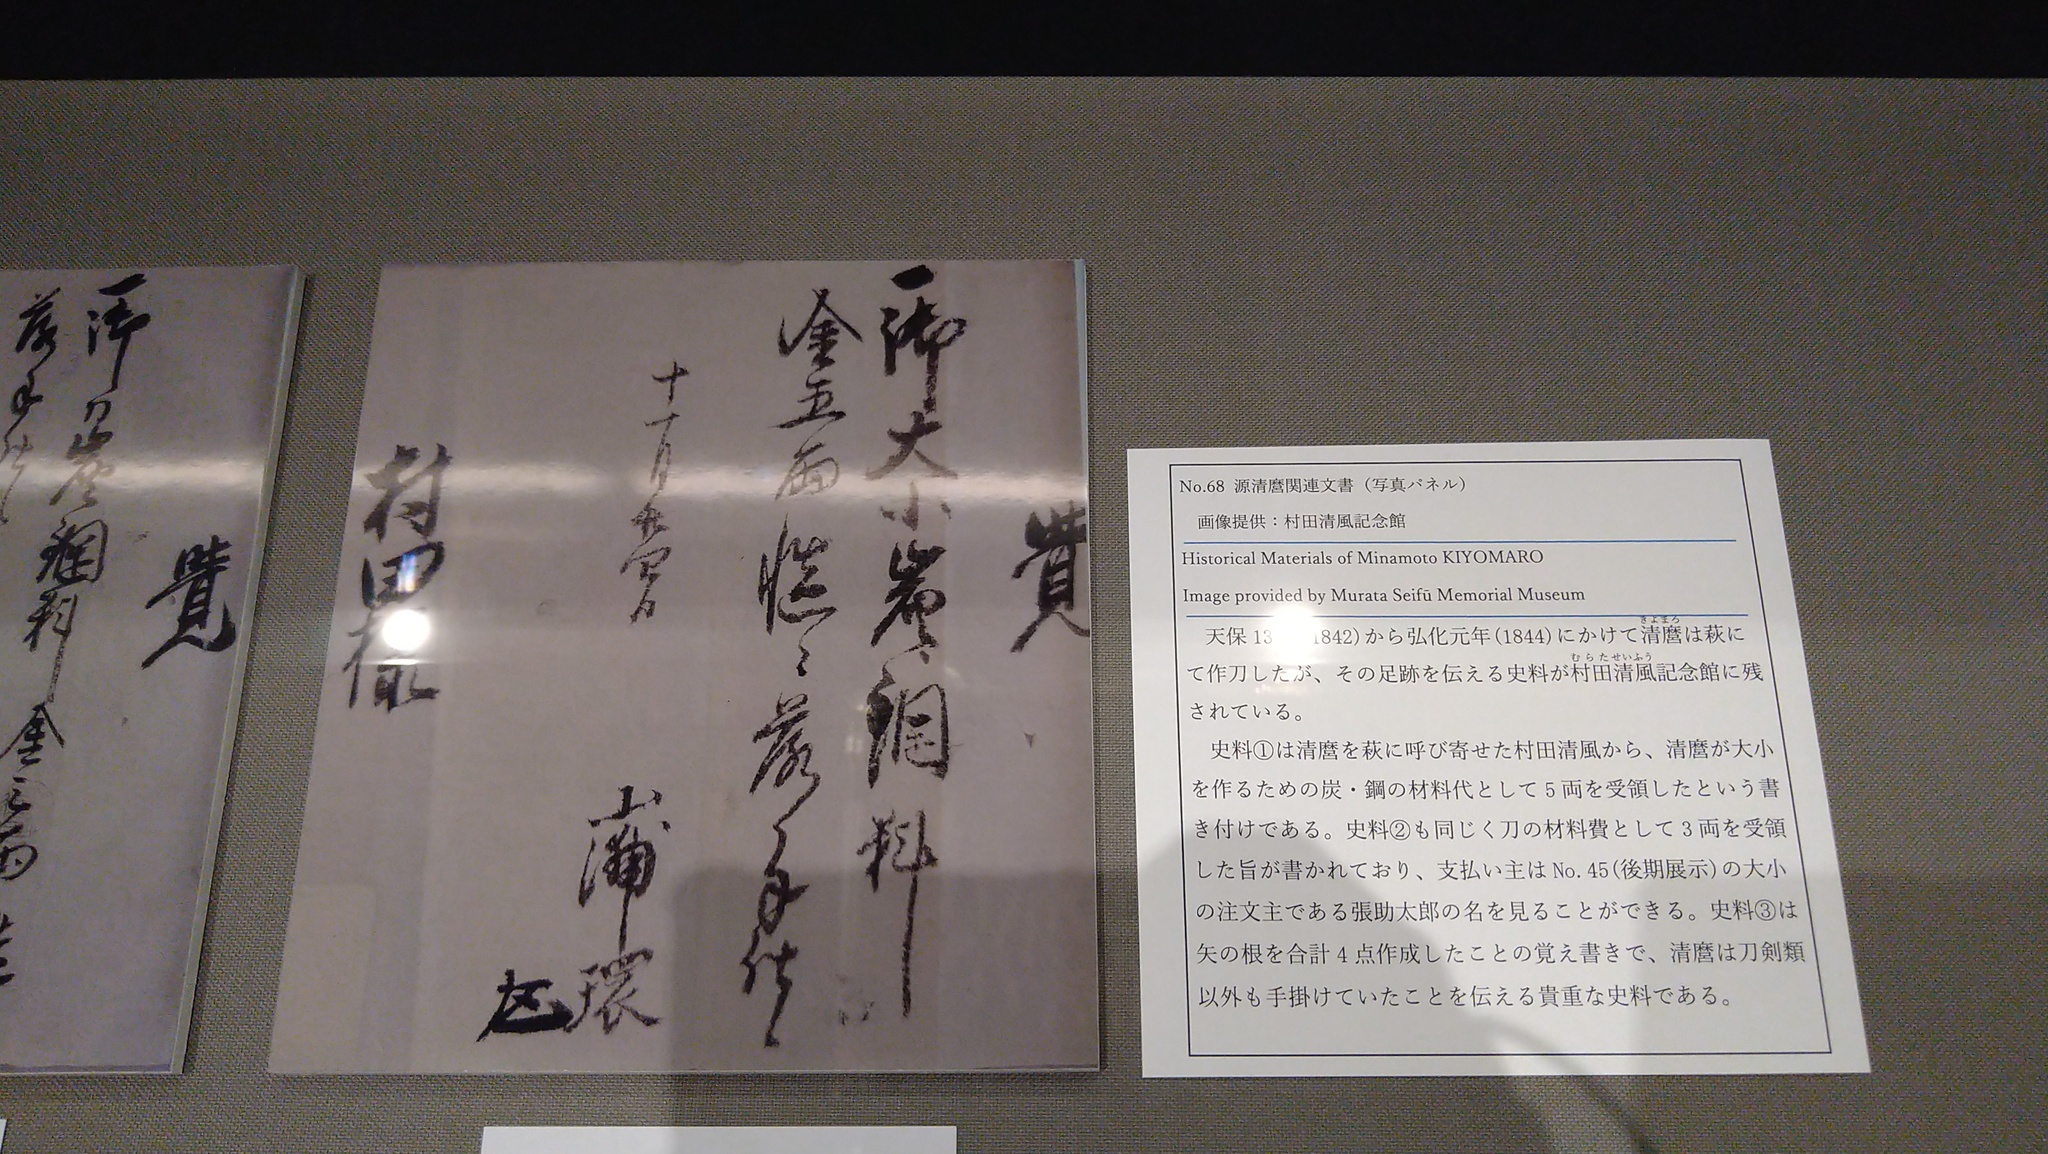 No.68 源清麿関連文書（写真パネル）
画像提供：村田清風記念館
Historical Materials of Minamoto KIYOMARO
Image provided by Murata Seifū Memorial Museum
天保 13 1842)から弘化元年(1844)にかけて清麿は萩に
て作刀したが、その足跡を伝える史料が村田清風記念館に残
されている。
史料①は清麿を萩に呼び寄せた村田清風から、清麿が大小
を作るための炭・鋼の材料代として 5 両を受領したという書
き付けである。史料②も同じく刀の材料費として 3 両を受領
した旨が書かれており、支払い主は No. 45(後期展示)の大小
の注文主である張助太郎の名を見ることができる。史料③は
矢の根を合計 4 点作成したことの覚え書きで、清麿は刀剣類
以外も手掛けていたことを伝える貴重な史料である。
覚
一御大小炭鋼料
金五両慥ニ落手仕
十一月
山浦環
村田様
覚
一御刀炭鋼料金三両
落手仕